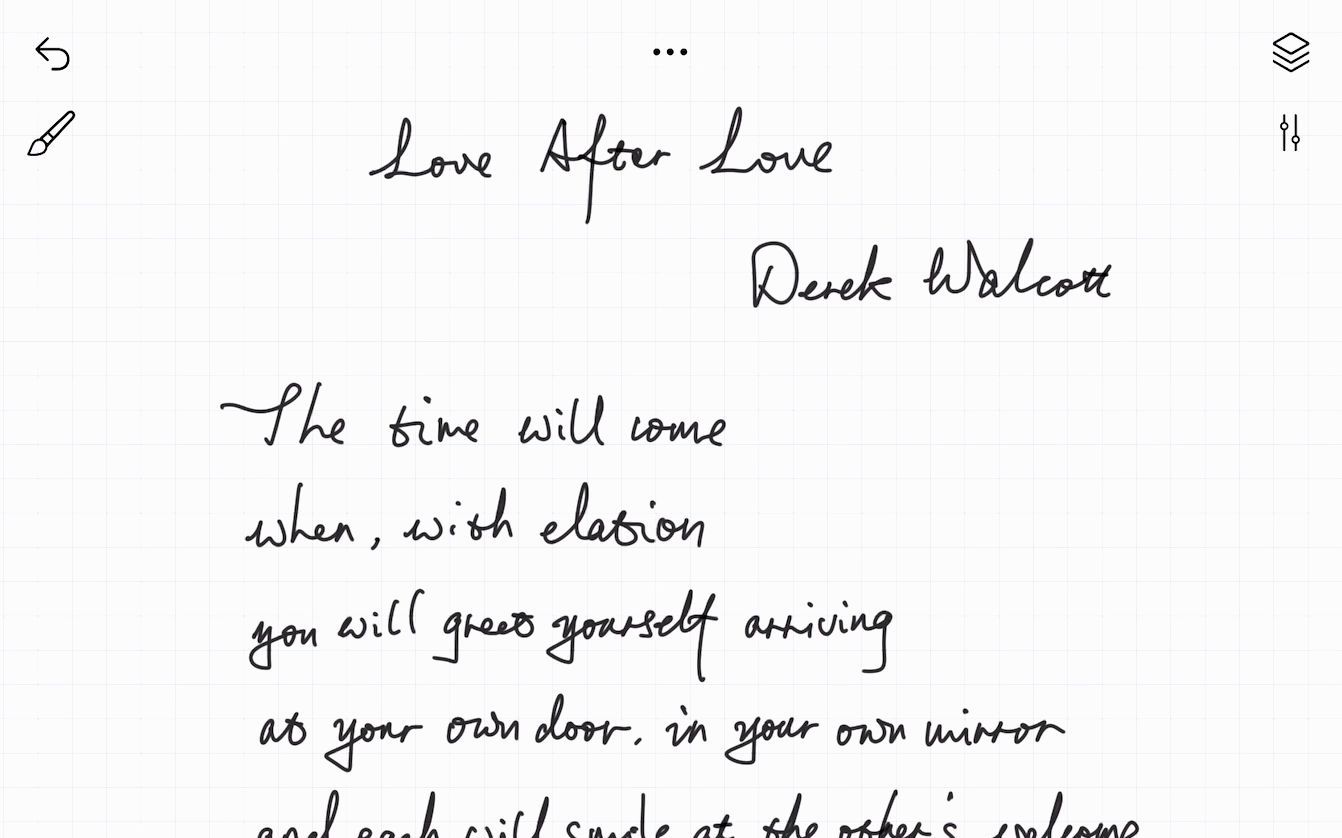 Love After Love
Derek Walcott
The time will come
when, with elation
you will greet yourself arriving
at your own door, in your own mirror
and each will smile at the other's welcome